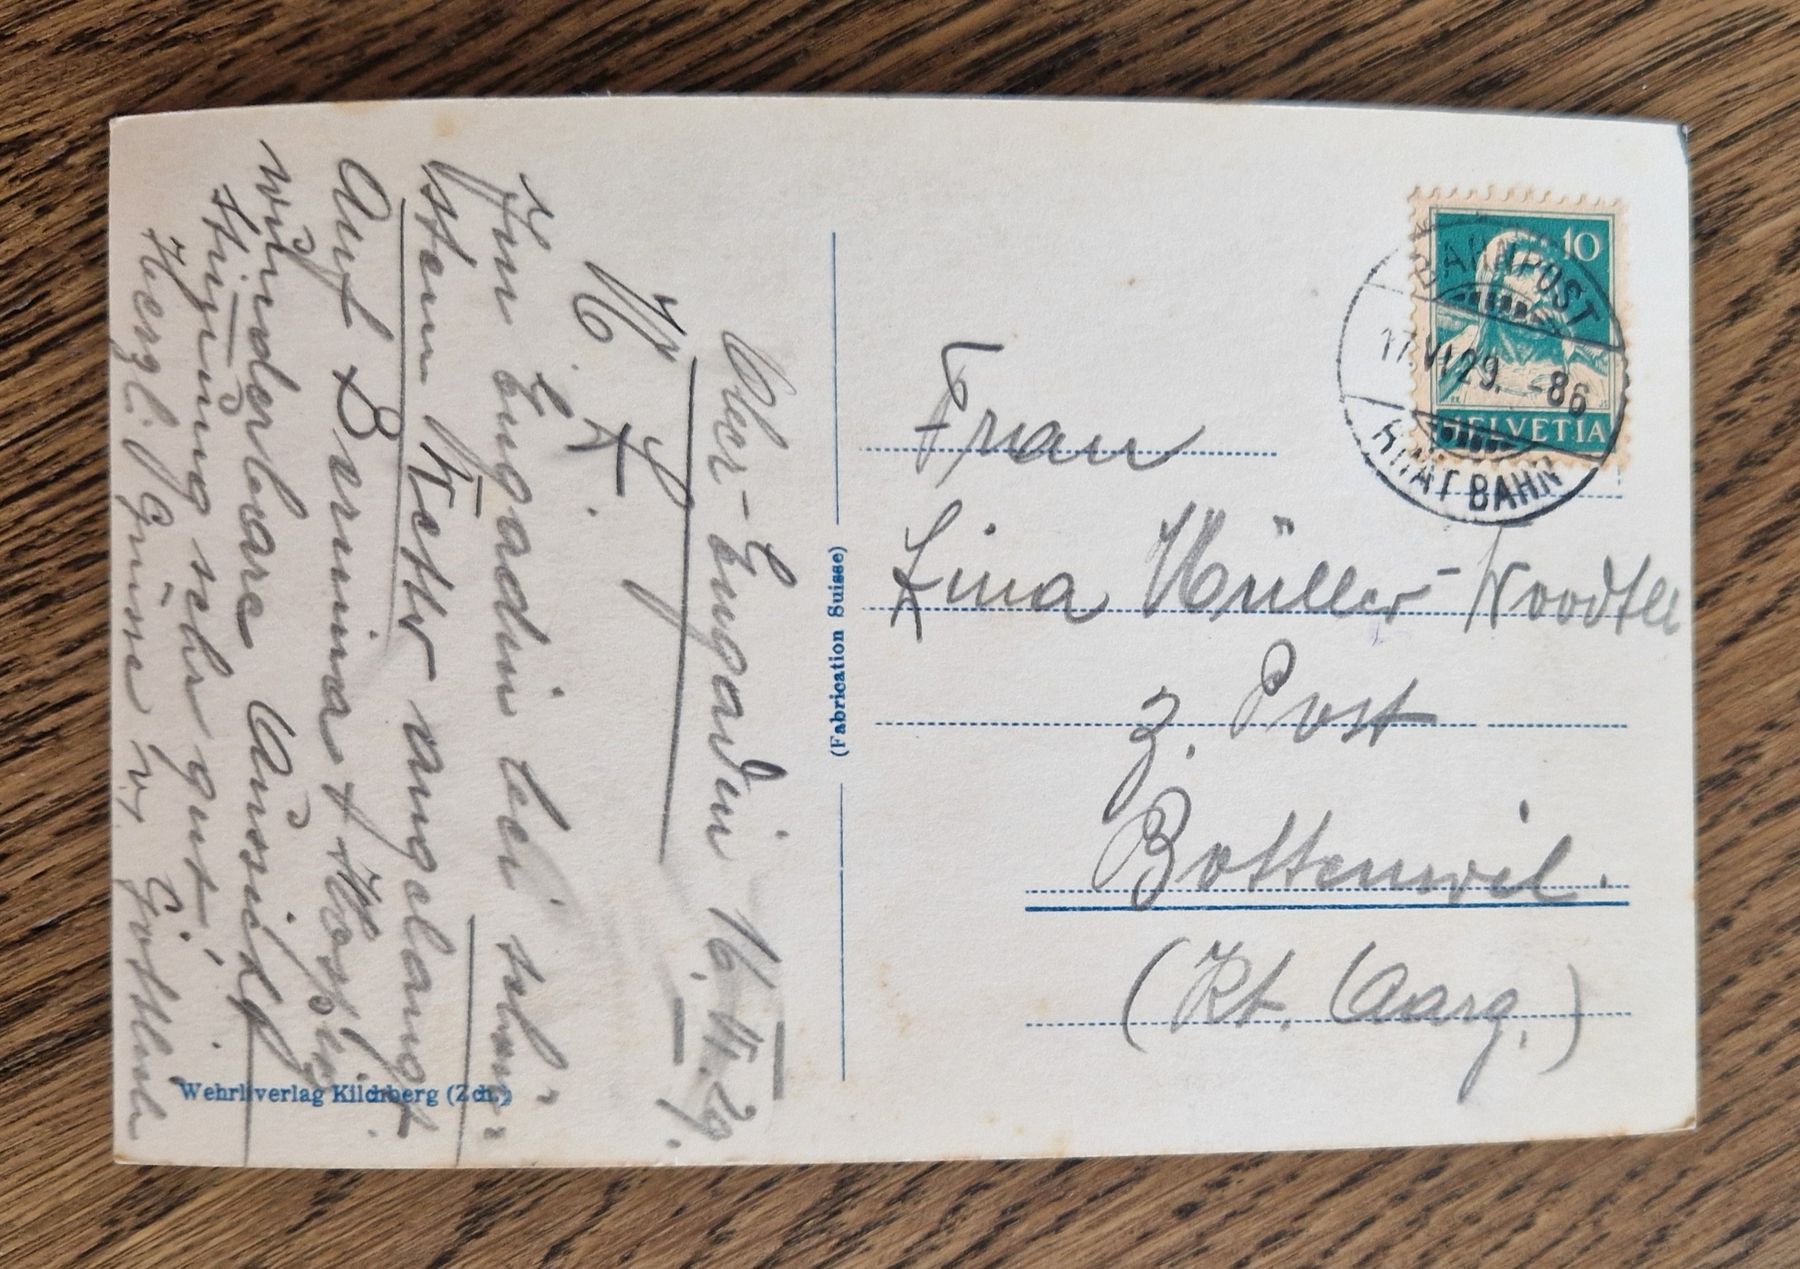 Ober-Engadin 16. VI. 29.
M. L.
Im Engadin bei schön-
stem Wetter angelangt.
Auf Bernina + Hospiz
wunderbare Aussicht
Stimmung sehr gut!
Herzl. Grüsse v. Gottlieb
Wehrliverlag Kilchberg (Zch.)
(Fabrication Suisse)
10
HELVETIA
BAHNPOST
17.VI.29. -86
RHÄT BAHN
Frau
Lina Müller-Woodtli
z. Post
Bottenwil.
(Kt. Aarg.)